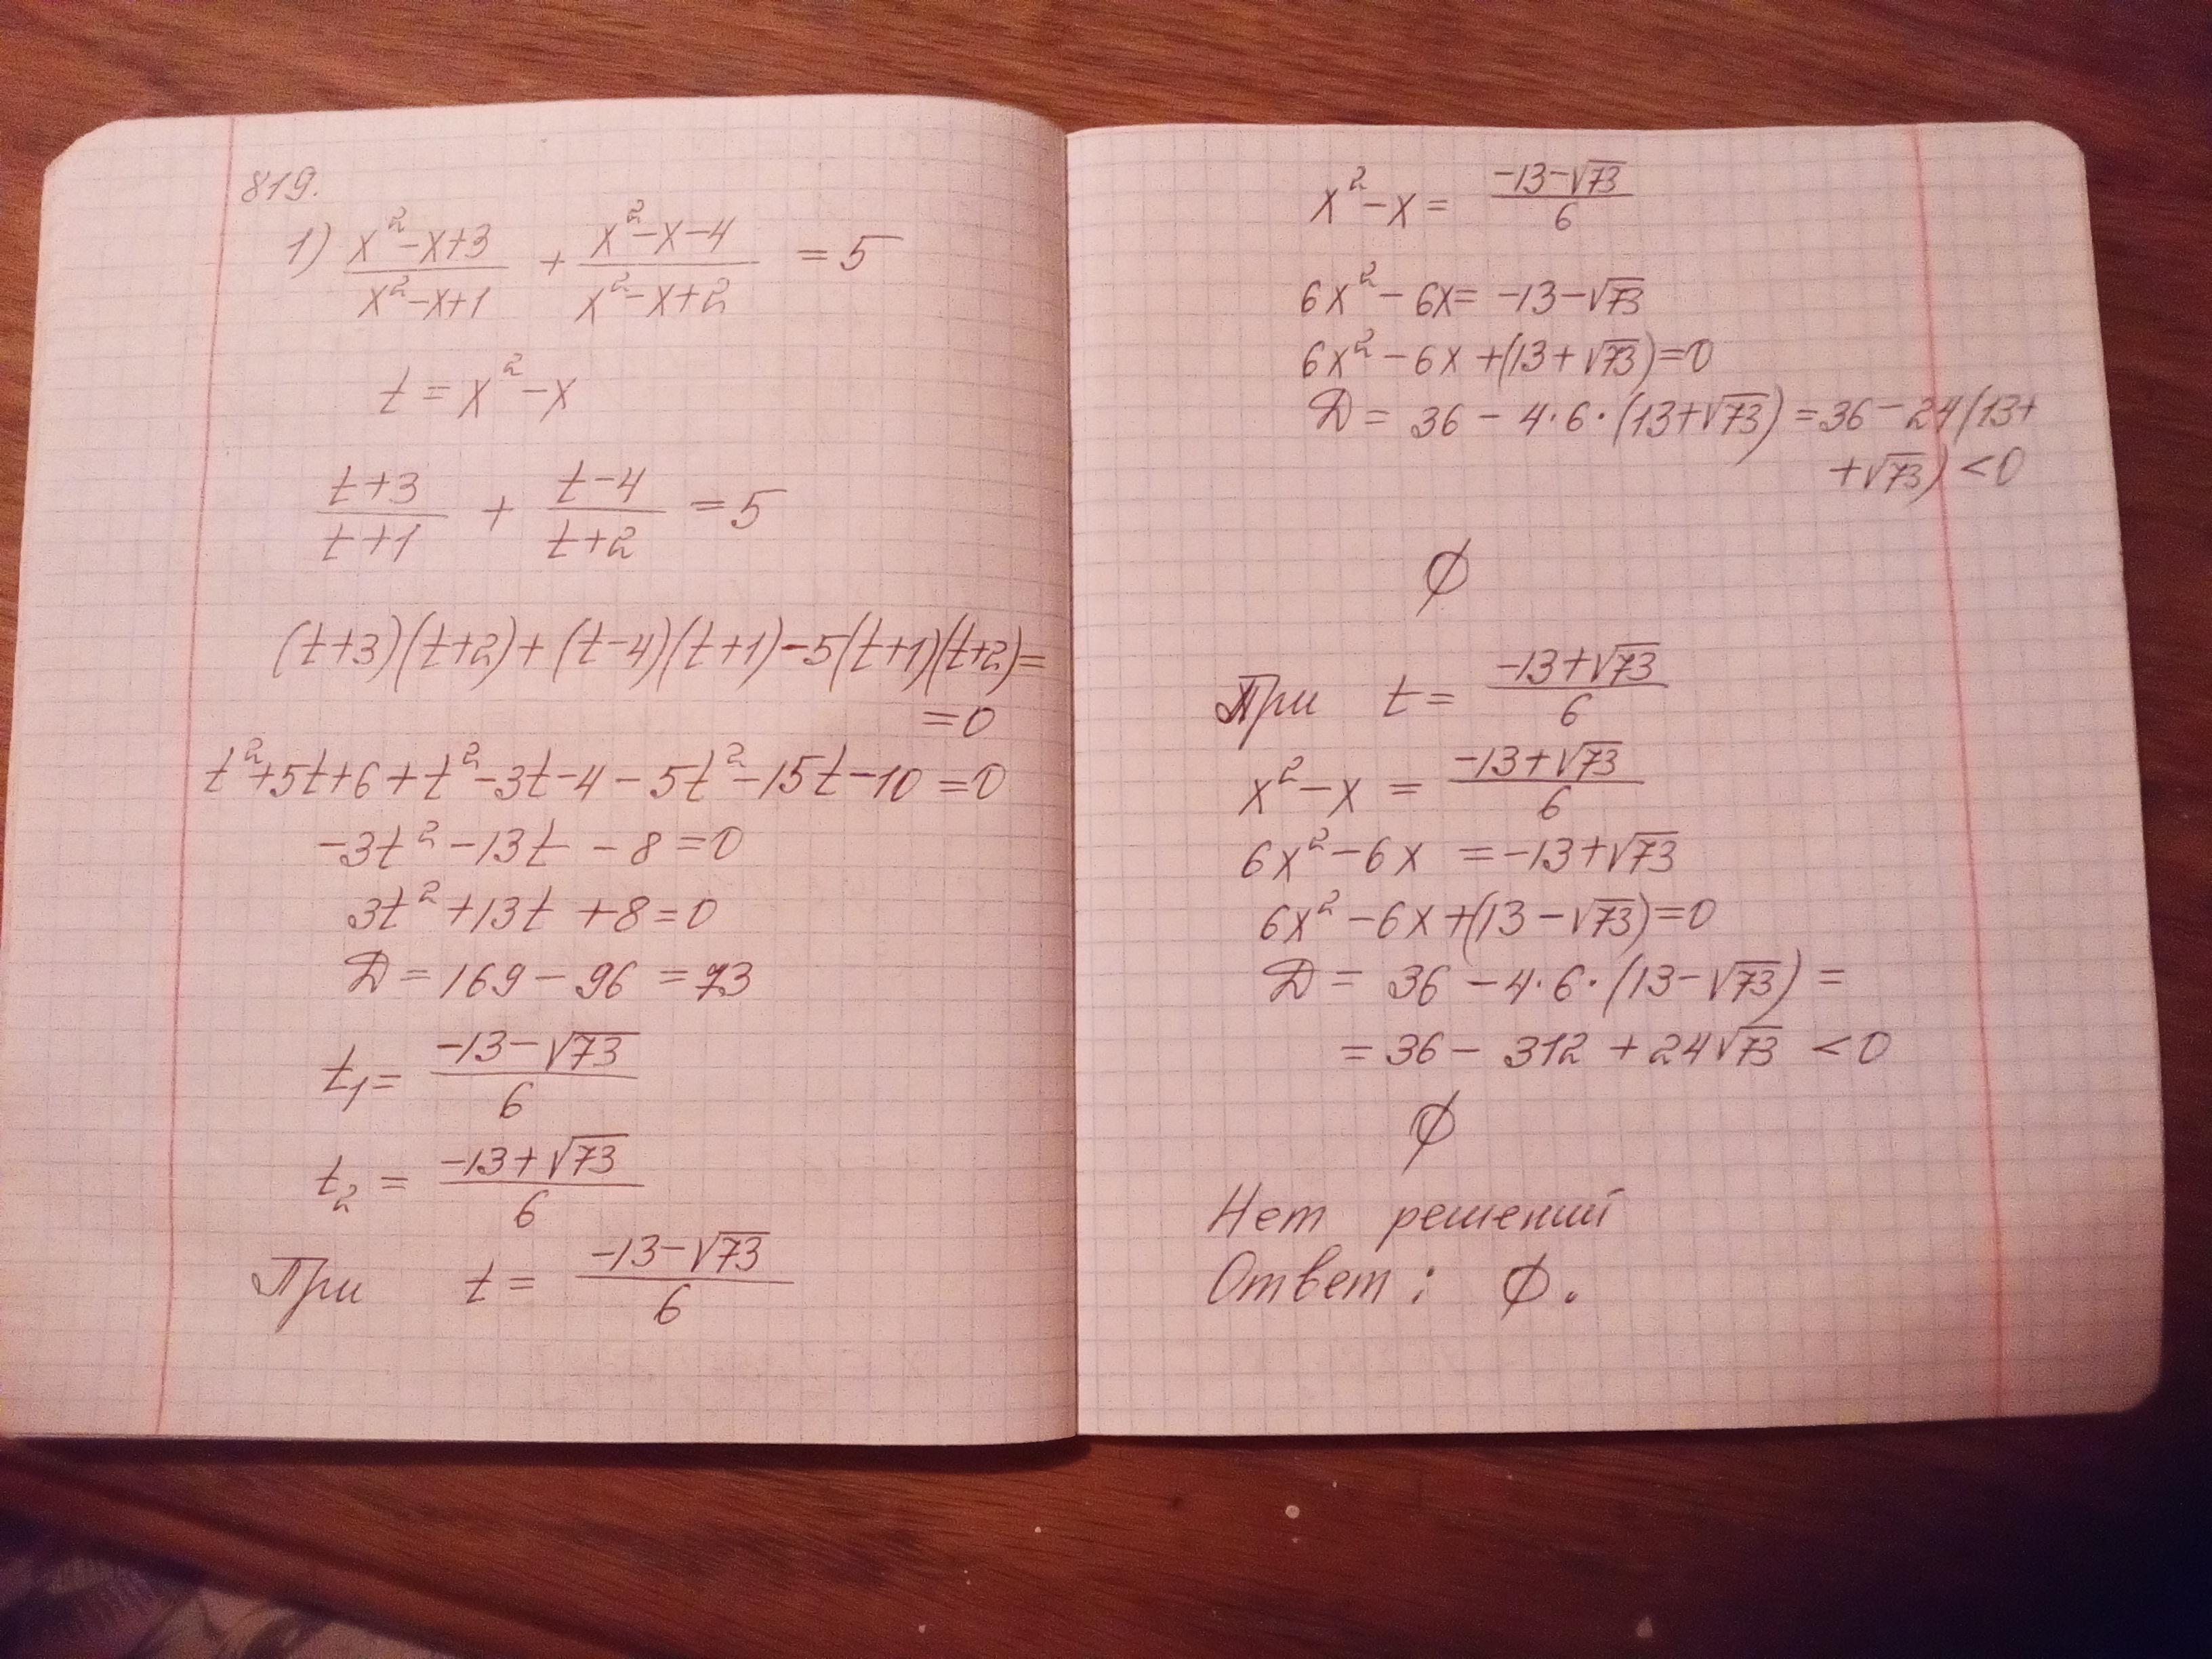 819.
1) (x²-x+3)/(x²-x+1) + (x²-x-4)/(x²-x+2) = 5
t = x²-x
(t+3)/(t+1) + (t-4)/(t+2) = 5
(t+3)(t+2)+(t-4)(t+1)-5(t+1)(t+2)=
=0
t²+5t+6+t²-3t-4-5t²-15t-10=0
-3t²-13t-8=0
3t²+13t+8=0
Д=169-96=73
t₁= (-13-√73)/6
t₂= (-13+√73)/6
При t= (-13-√73)/6
x²-x= (-13-√73)/6
6x²-6x=-13-√73
6x²-6x+(13+√73)=0
Д=36-4·6·(13+√73)=36-24(13+
+√73)<0
∅
При t= (-13+√73)/6
x²-x= (-13+√73)/6
6x²-6x=-13+√73
6x²-6x+(13-√73)=0
Д=36-4·6·(13-√73)=
=36-312+24√73<0
∅
Нет решений
Ответ: ∅.